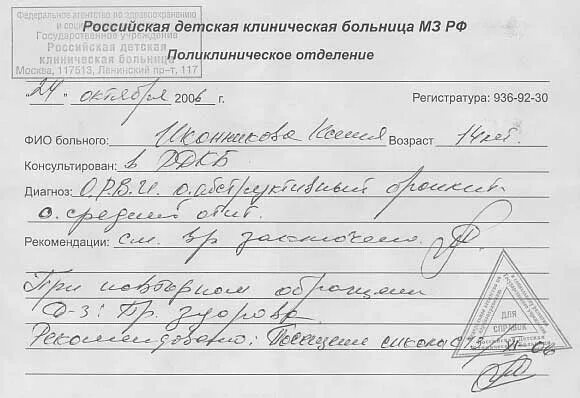 Федеральное агентство по здравоохранению
и социа
Государственное учреждение
Российская детская
клиническая больница
Москва, 117513, Ленинский пр-т, 117
Российская детская клиническая больница МЗ РФ
Поликлиническое отделение
"24" октября 2006 г.
Регистратура: 936-92-30
ФИО больного: Иконникова Ксения Возраст 14 лет.
Консультирован: в РДКБ
Диагноз: О.Р.В.И. о.обструктивный бронхит
о. средний отит.
Рекомендации: см. вр заключено.
При повторном обращении
Д-з: Пр. здорова
Рекомендовано: Посещение школы с
ДЛЯ
СПРАВОК